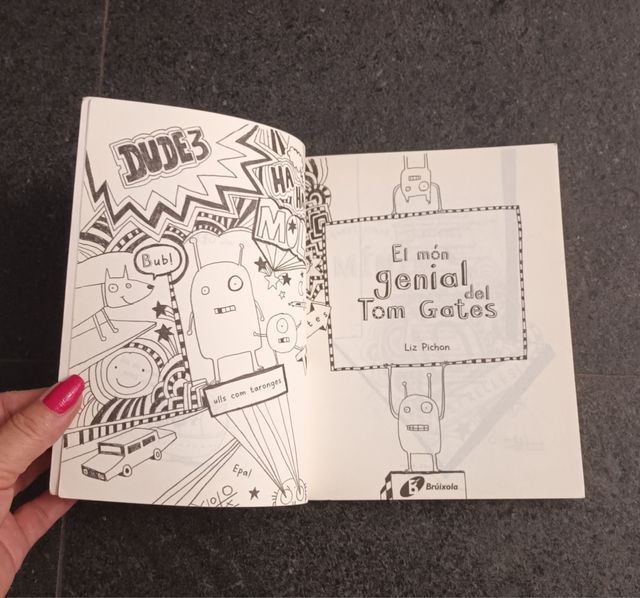 DUDE3
HA
MO
Bub!
ulls com taronges
Epa!
El món
genial
del
Tom Gates
Liz Pichon
Brúixola